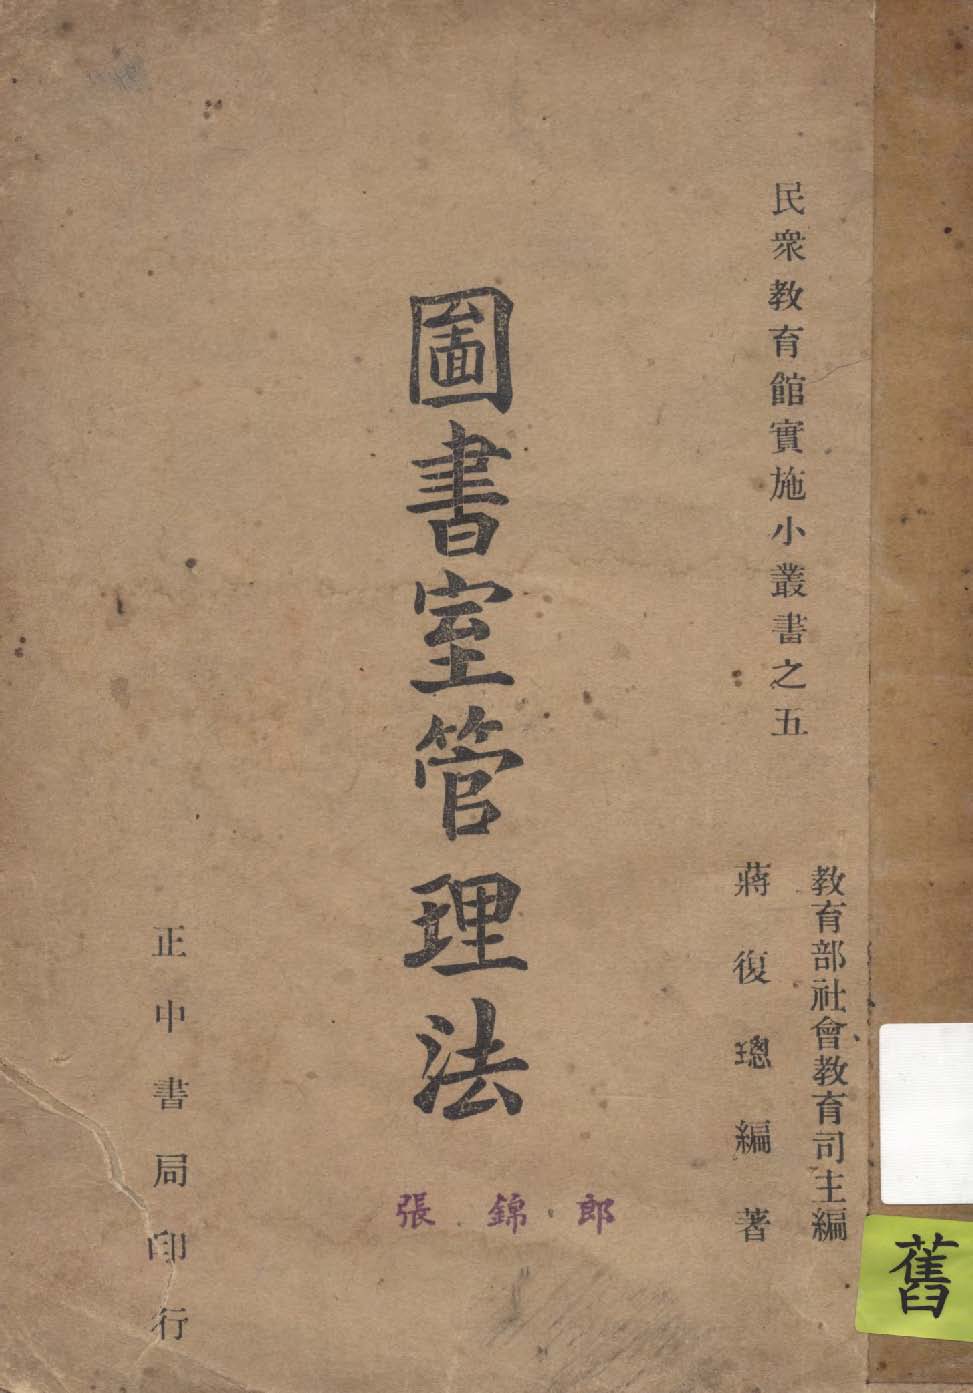 民衆教育館實施小叢書之五
教育部社會教育司主編
蔣復璁編著
圕書室管理法
張錦郎
正中書局印行
舊